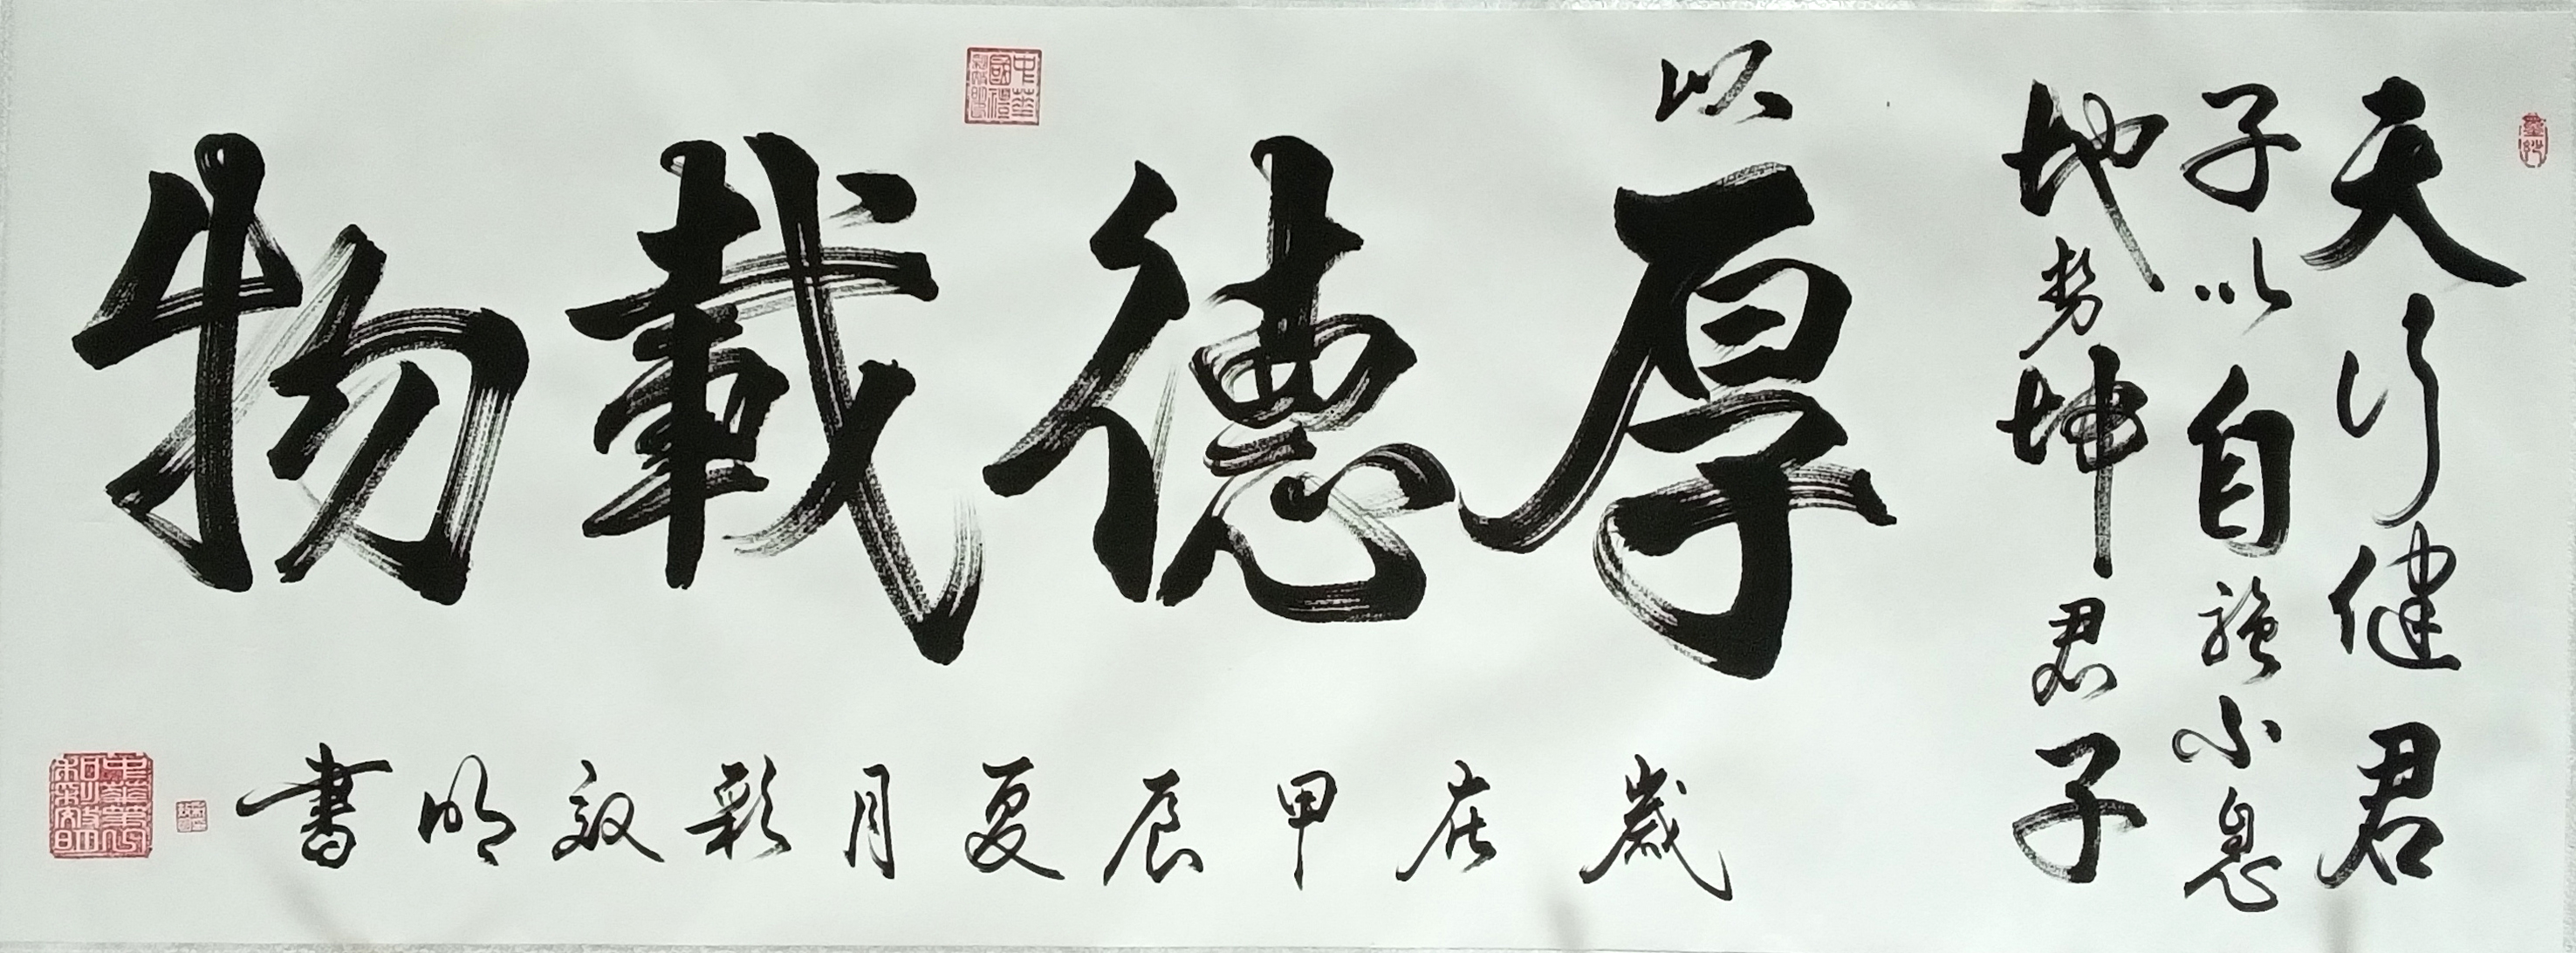 天行健君
子以自強不息
地勢坤君子
以
厚德載物
歲在甲辰夏月彩敦明書